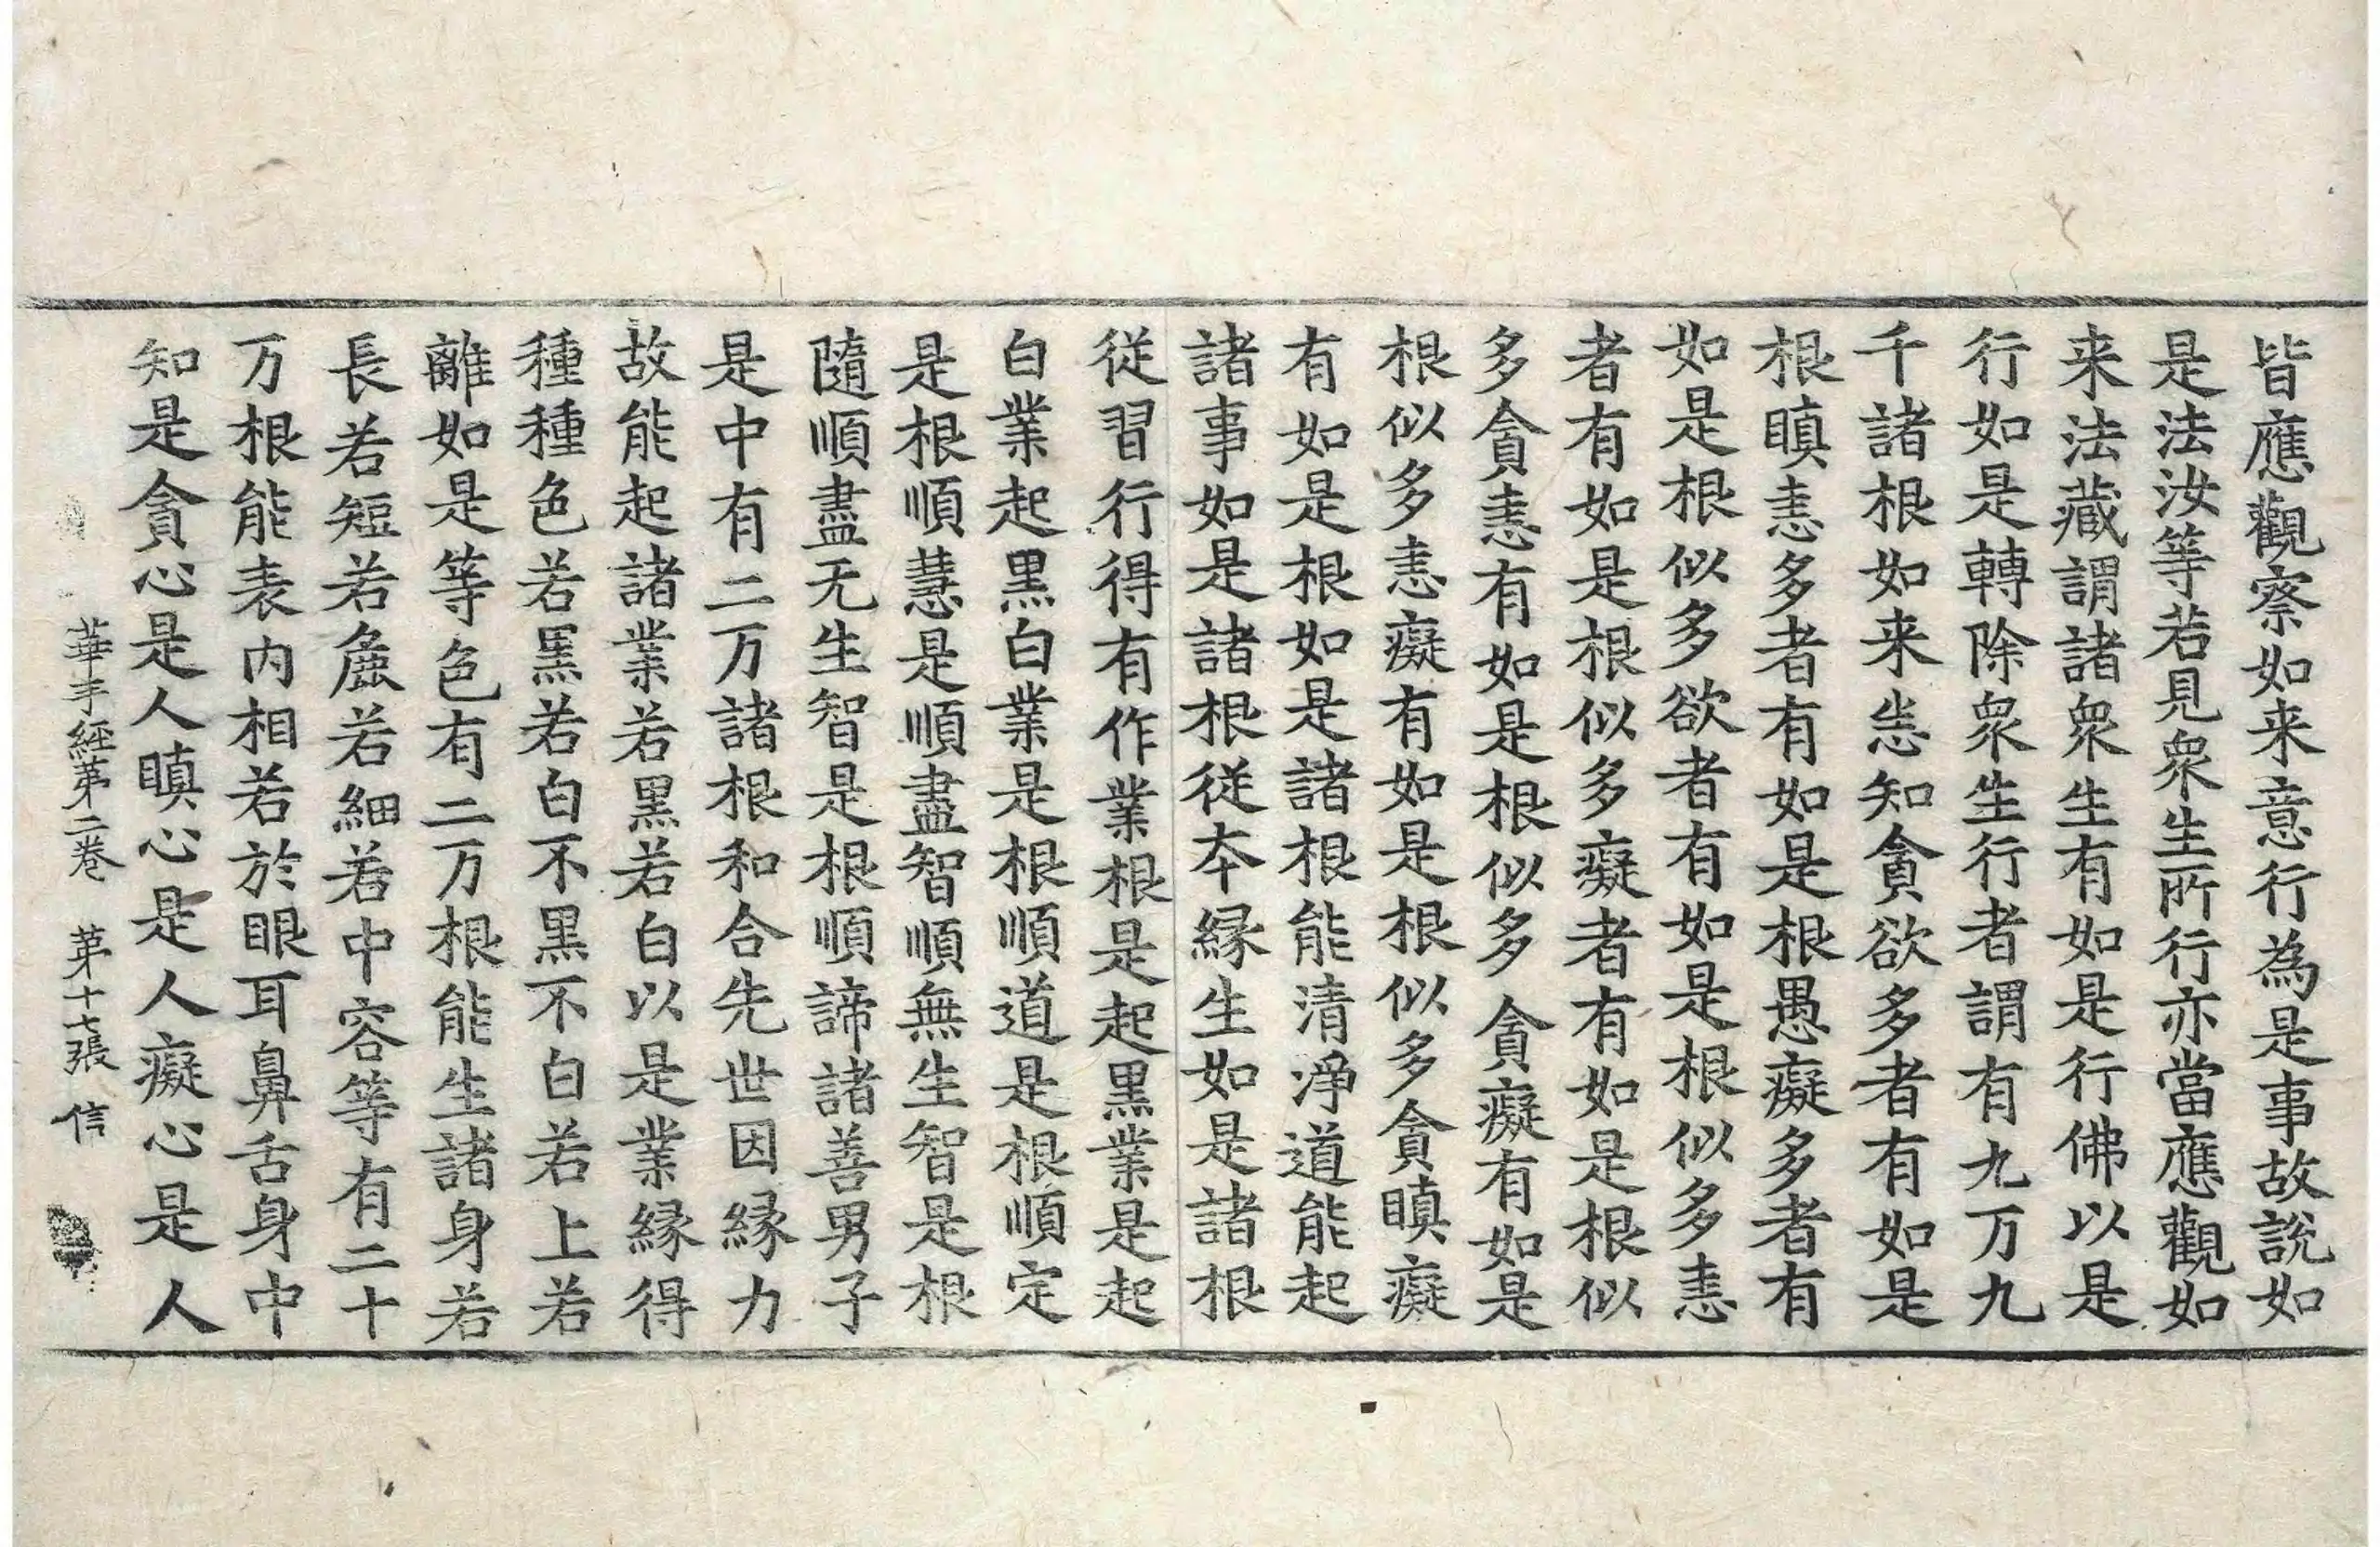 皆應觀察如来意行為是事故說如
是法汝等若見衆生所行亦當應觀如
来法藏謂諸衆生有如是行佛以是
行如是轉除衆生行者謂有九万九
千諸根如来悉知貪欲多者有如是
根瞋恚多者有如是根愚癡多者有
如是根似多欲者有如是根似多恚
者有如是根似多癡者有如是根似
多貪恚有如是根似多貪癡有如是
根似多恚癡有如是根似多貪瞋癡
有如是根如是諸根能清淨道能起
諸事如是諸根從本縁生如是諸根
從習行得有作業根是起黒業是起
白業起黒白業是根順道是根順定
是根順慧是順盡智順無生智是根
隨順盡无生智是根順諦諸善男子
是中有二万諸根和合先世因縁力
故能起諸業若黒若白以是業縁得
種種色若黒若白不黒不白若上若
離如是等色有二万根能生諸身若
長若短若麁若細若中容等有二十
万根能表内相若於眼耳鼻舌身中
知是貪心是人瞋心是人癡心是人
華手經第二卷 第十七張 信